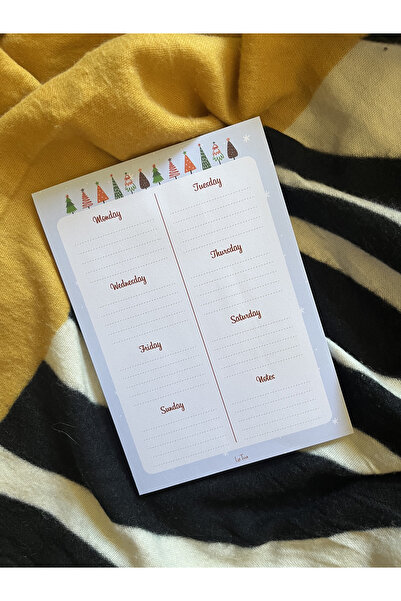 Monday
Tuesday
Wednesday
Thursday
Friday
Saturday
Sunday
Notes